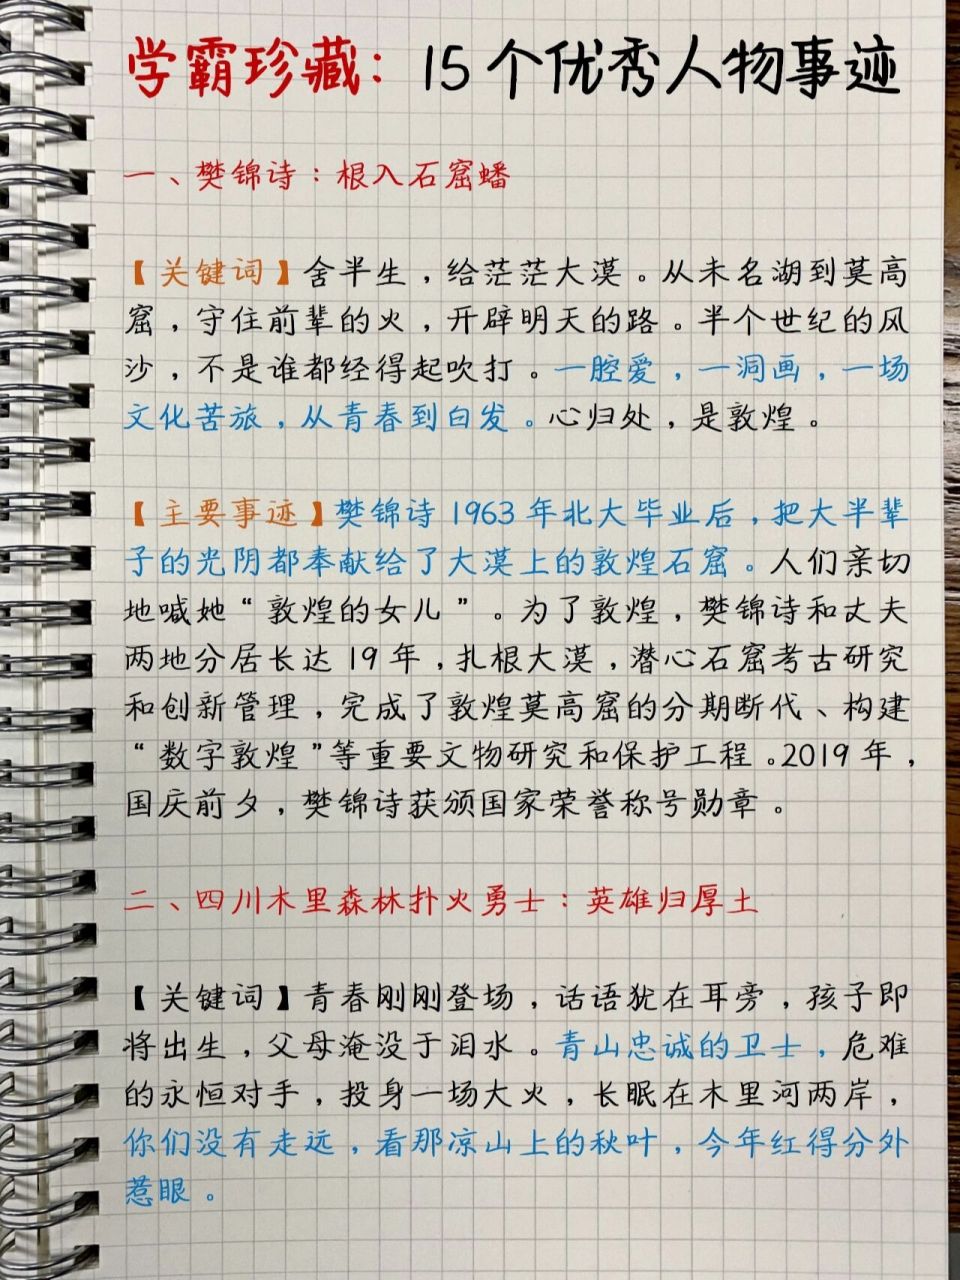 学霸珍藏：15个优秀人物事迹
一、樊锦诗：根入石窟蟠
【关键词】舍半生，给茫茫大漠。从未名湖到莫高
窟，守住前辈的火，开辟明天的路。半个世纪的风
沙，不是谁都经得起吹打。一腔爱，一洞画，一场
文化苦旅，从青春到白发。心归处，是敦煌。
【主要事迹】樊锦诗1963年北大毕业后，把大半辈
子的光阴都奉献给了大漠上的敦煌石窟。人们亲切
地喊她“敦煌的女儿”。为了敦煌，樊锦诗和丈夫
两地分居长达19年，扎根大漠，潜心石窟考古研究
和创新管理，完成了敦煌莫高窟的分期断代、构建
“数字敦煌”等重要文物研究和保护工程。2019年，
国庆前夕，樊锦诗获颁国家荣誉称号勋章。
二、四川木里森林扑火勇士：英雄归厚土
【关键词】青春刚刚登场，话语犹在耳旁，孩子即
将出生，父母淹没于泪水。青山忠诚的卫士，危难
的永恒对手，投身一场大火，长眠在木里河两岸，
你们没有走远，看那凉山上的秋叶，今年红得分外
惹眼。